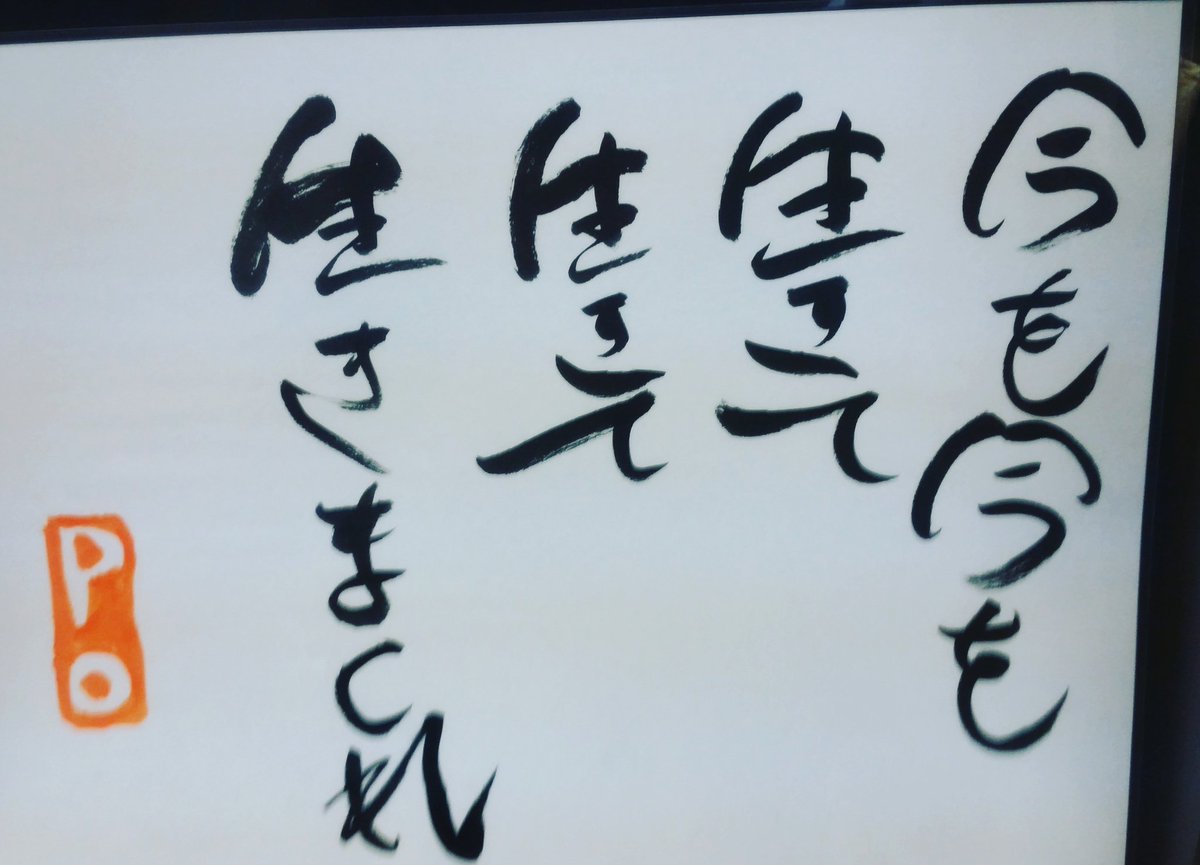 今を今を
生きて
生きて
生きまくれ
PO